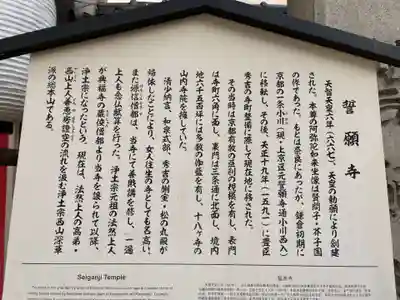 誓願寺
天智天皇六年(六六七)、天皇の勅願により創建
された。本尊の阿弥陀如来坐像は賢問子・芥子国
の作であった。もとは奈良にあったが、鎌倉初期に
京都の一条小川(現・上京区元誓願寺通小川西入)
に移転し、その後、天正十九年(一五九一)に豊臣
秀吉の寺町整備に際して現在地に移された。
その当時は京都有数の巨刹の規模を有し、表門
は寺町六角に面し、裏門は三条通に北面し、境内
地六千五百坪には多数の伽藍を有し、十八ヶ寺の
山内寺院を擁していた。
清少納言、和泉式部、秀吉の側室・松の丸殿が
帰依したことにより、女人往生の寺としても名高い。
また源信僧都は、当寺にて善財講を修し、一遍
上人も念仏賦算を行った。浄土宗元祖の法然上人
が興福寺の蔵俊僧都より当寺を譲られて以降、
浄土宗になったという。現在は、法然上人の高弟・
西山上人善恵房證空の流れを汲む浄土宗西山深草
派の総本山である。
Seiganji Temple